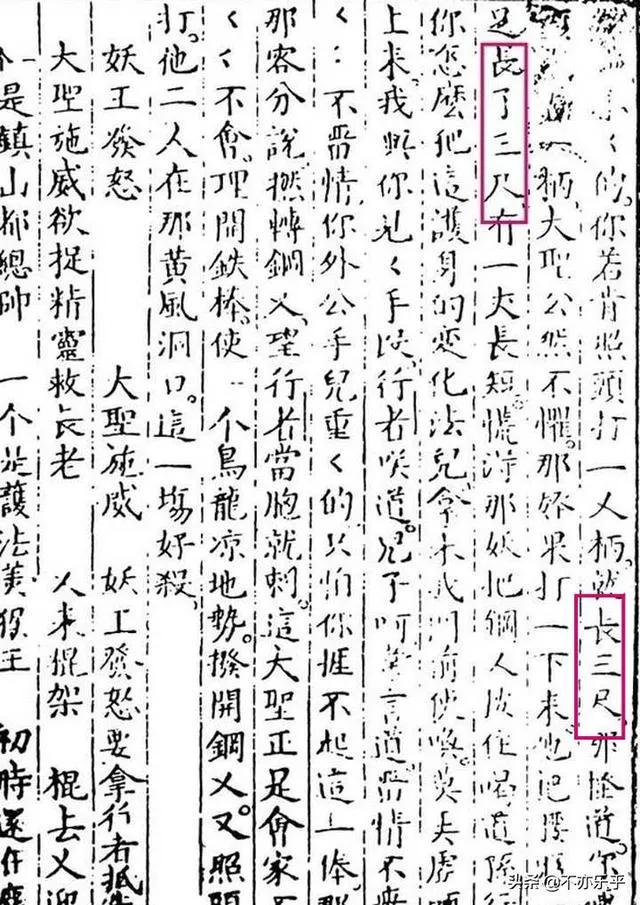 小〱的。你若肯照頭打一乂柄。就长三尺。那怪道。你
柄。大聖公然不懼。那妖果打一下來。他把腰
足長了三尺。有一丈長短。慌得那妖把鋼乂按住喝道。孫行
你怎麽把這護身的变化法兒。拿來我門前使喚。莫弄虛
上來。我與你見〱手段。行者咲道。兒子呵。常言道。畱情不
〱〱不畱情。你外公手兒重〱的。只怕你捱不起這一棒。那
那容分說。撚轉鋼乂。望行者當胸就刺。這大聖正是會家不
〱〱不會。理開鉄棒。使一个烏龍涼地勢。撥開鋼乂。又照頭
打。他二人在那黄風洞口。這一塲好殺。
妖王發怒 大聖施威 妖王發怒要拿行者抵先
大聖施威欲捉精靈救長老 乂來棍架 棍去乂迎
个是鎮山都總帥 一个是護法美猴王 初時還在塵
头条 @不亦乐乎